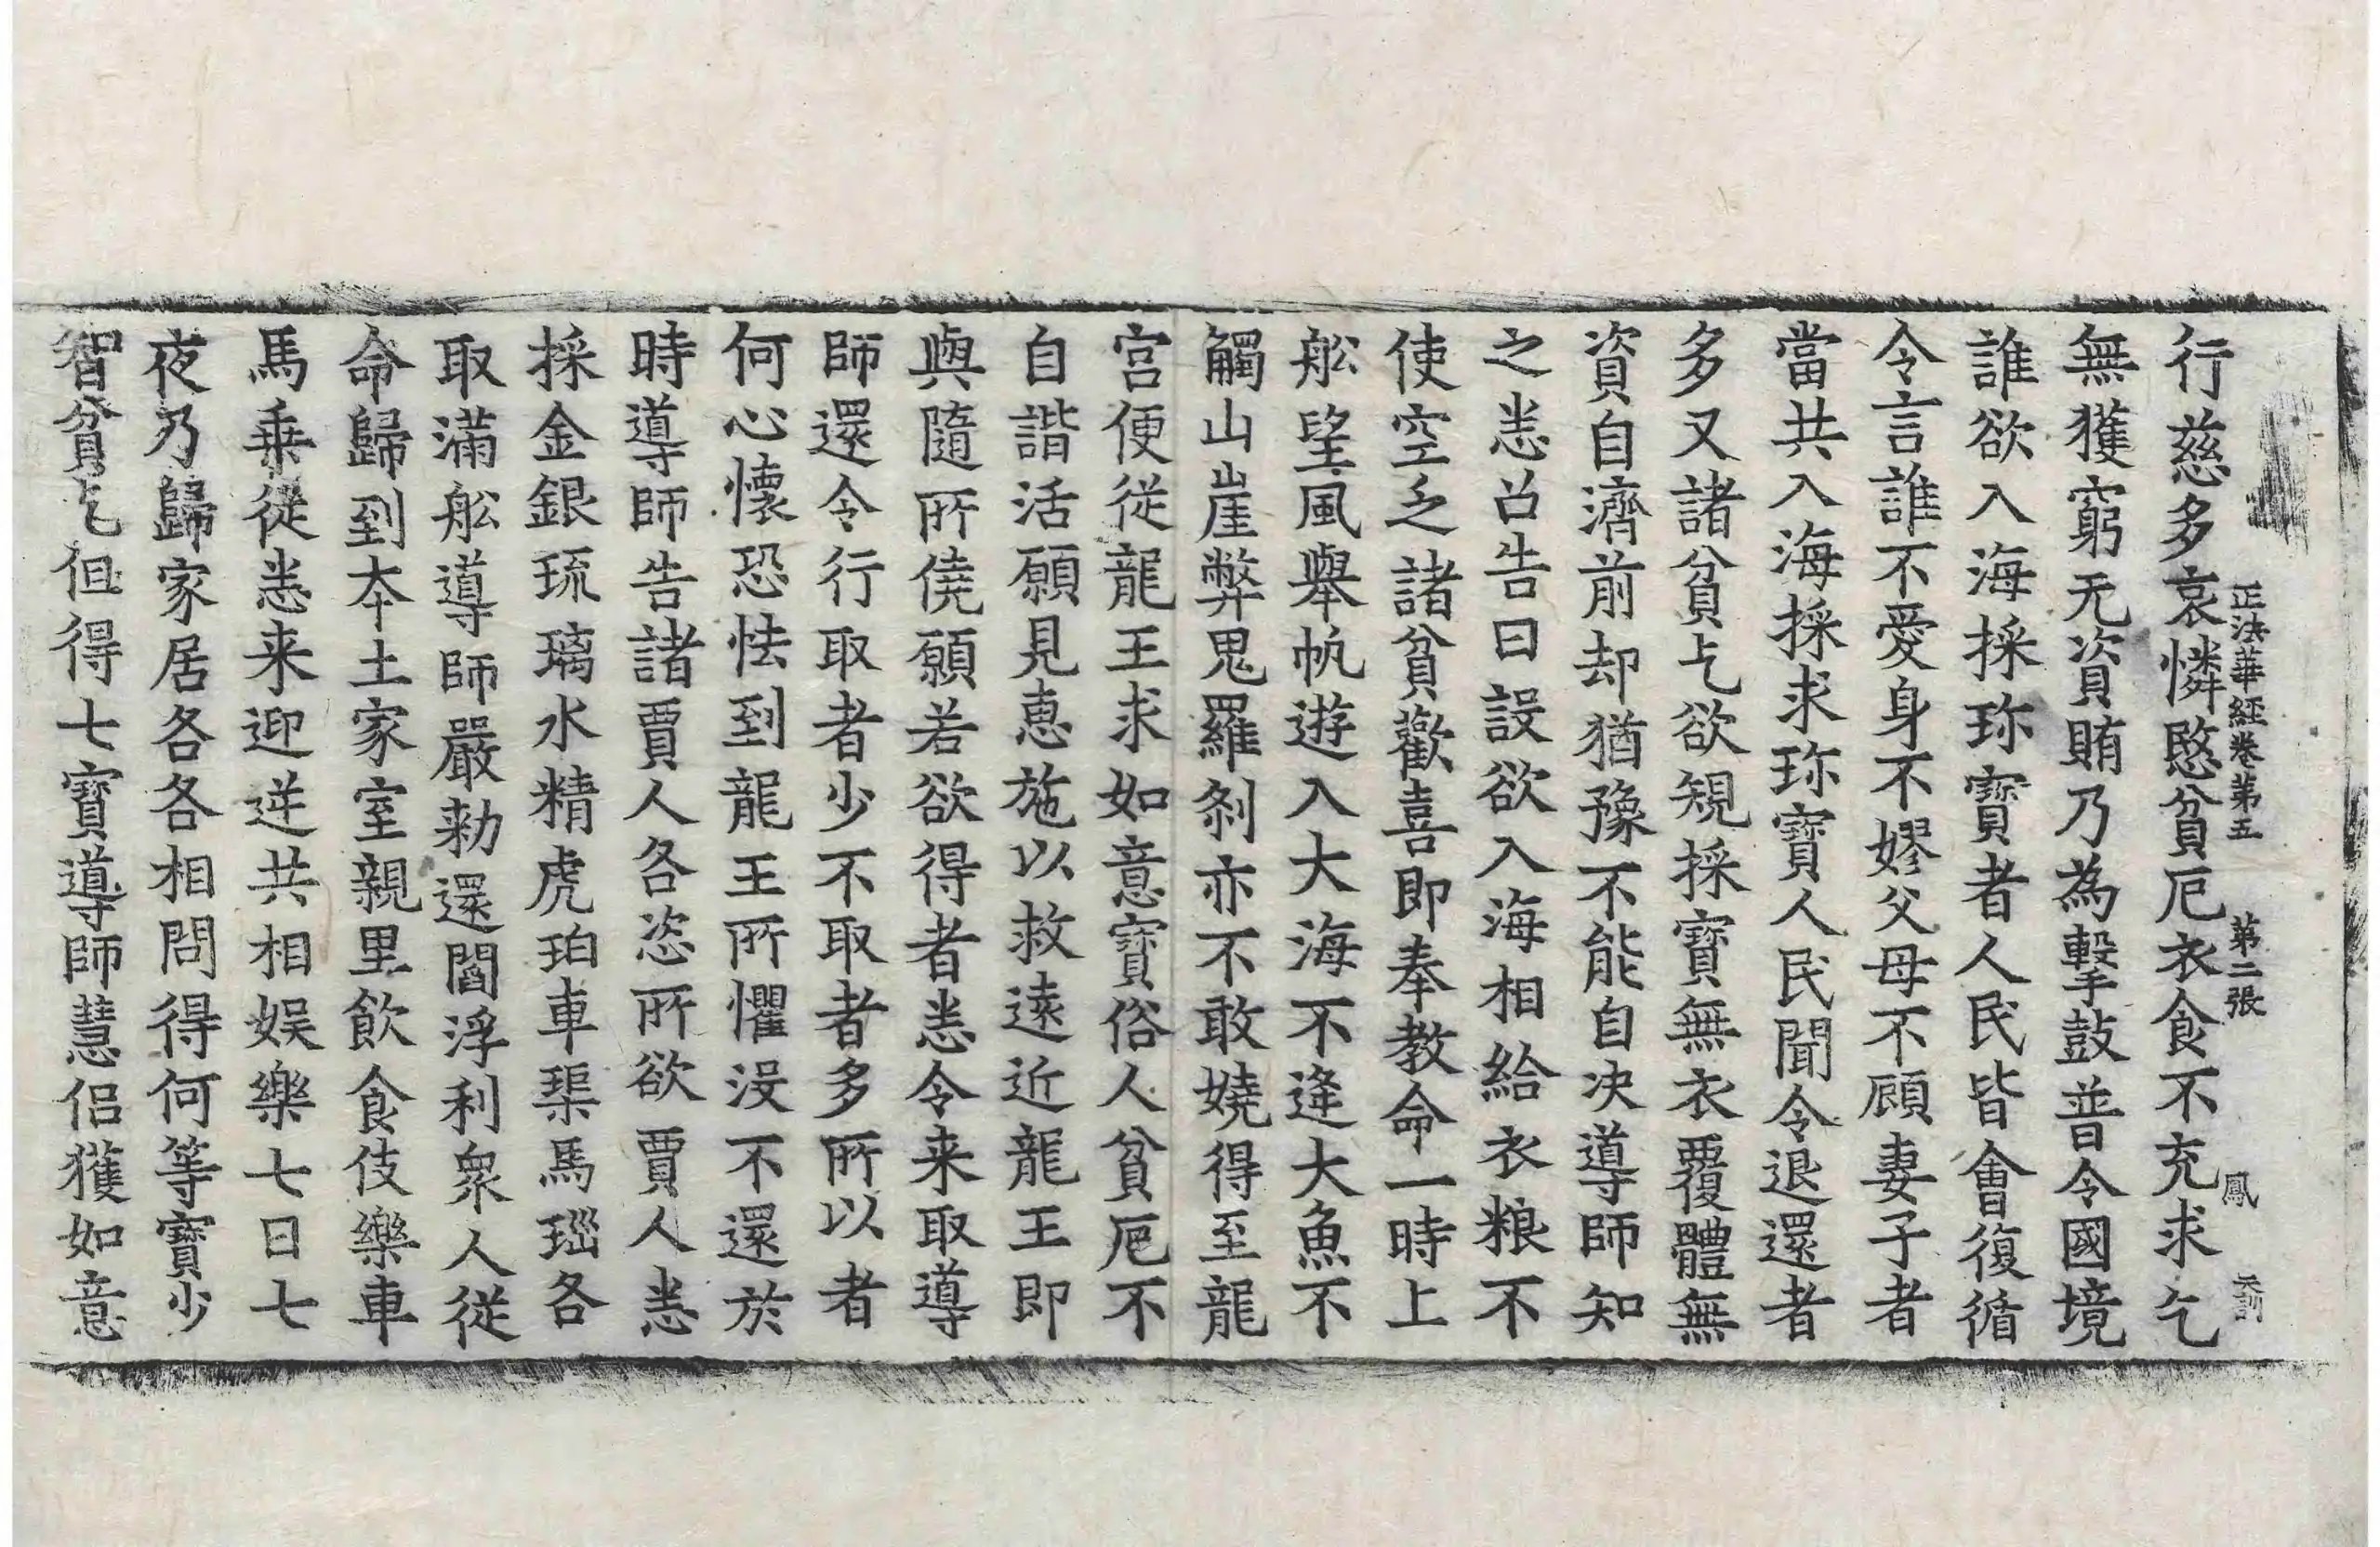 正法華經卷第五 第二張 鳳 天訓
行慈多哀憐愍貧厄衣食不充求乞
無獲窮无資賄乃為擊鼓普令國境
誰欲入海採珎寶者人民皆會復循
令言誰不愛身不嫪父母不顧妻子者
當共入海採求珎寶人民聞令退還者
多又諸貧乞欲䂓採寶無衣覆體無
資自濟前却猶豫不能自决導師知
之悉召告曰設欲入海相給衣粮不
使空乏諸貧歡喜即奉教命一時上
舩望風舉帆遊入大海不逢大魚不
觸山崖弊鬼羅剎亦不敢嬈得至龍
宮便從龍王求如意寶俗人貧厄不
自諧活願見惠施以救遠近龍王即
與隨所僥願若欲得者悉令来取導
師還令行取者少不取者多所以者
何心懷恐怯到龍王所懼没不還於
時導師告諸賈人各恣所欲賈人悉
採金銀琉璃水精虎珀車𤦲馬瑙各
取滿舩導師嚴勑還閻浮利衆人從
命歸到本土家室親里飲食伎樂車
馬乗從悉来迎逆共相娱樂七日七
夜乃歸家居各各相問得何等寶少
智貧乞但得七寶導師慧侣獲如意